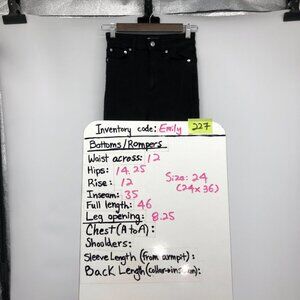 Inventory code: Emily 227
Bottoms/Rompers
Waist across: 12
Hips: 14.25
Rise: 12
Size: 24
(24x36)
Inseam: 35
Full length: 46
Leg opening: 8.25
Chest (A to A):
Shoulders:
Sleeve Length (from armpit):
Back Length (collar→inseam):